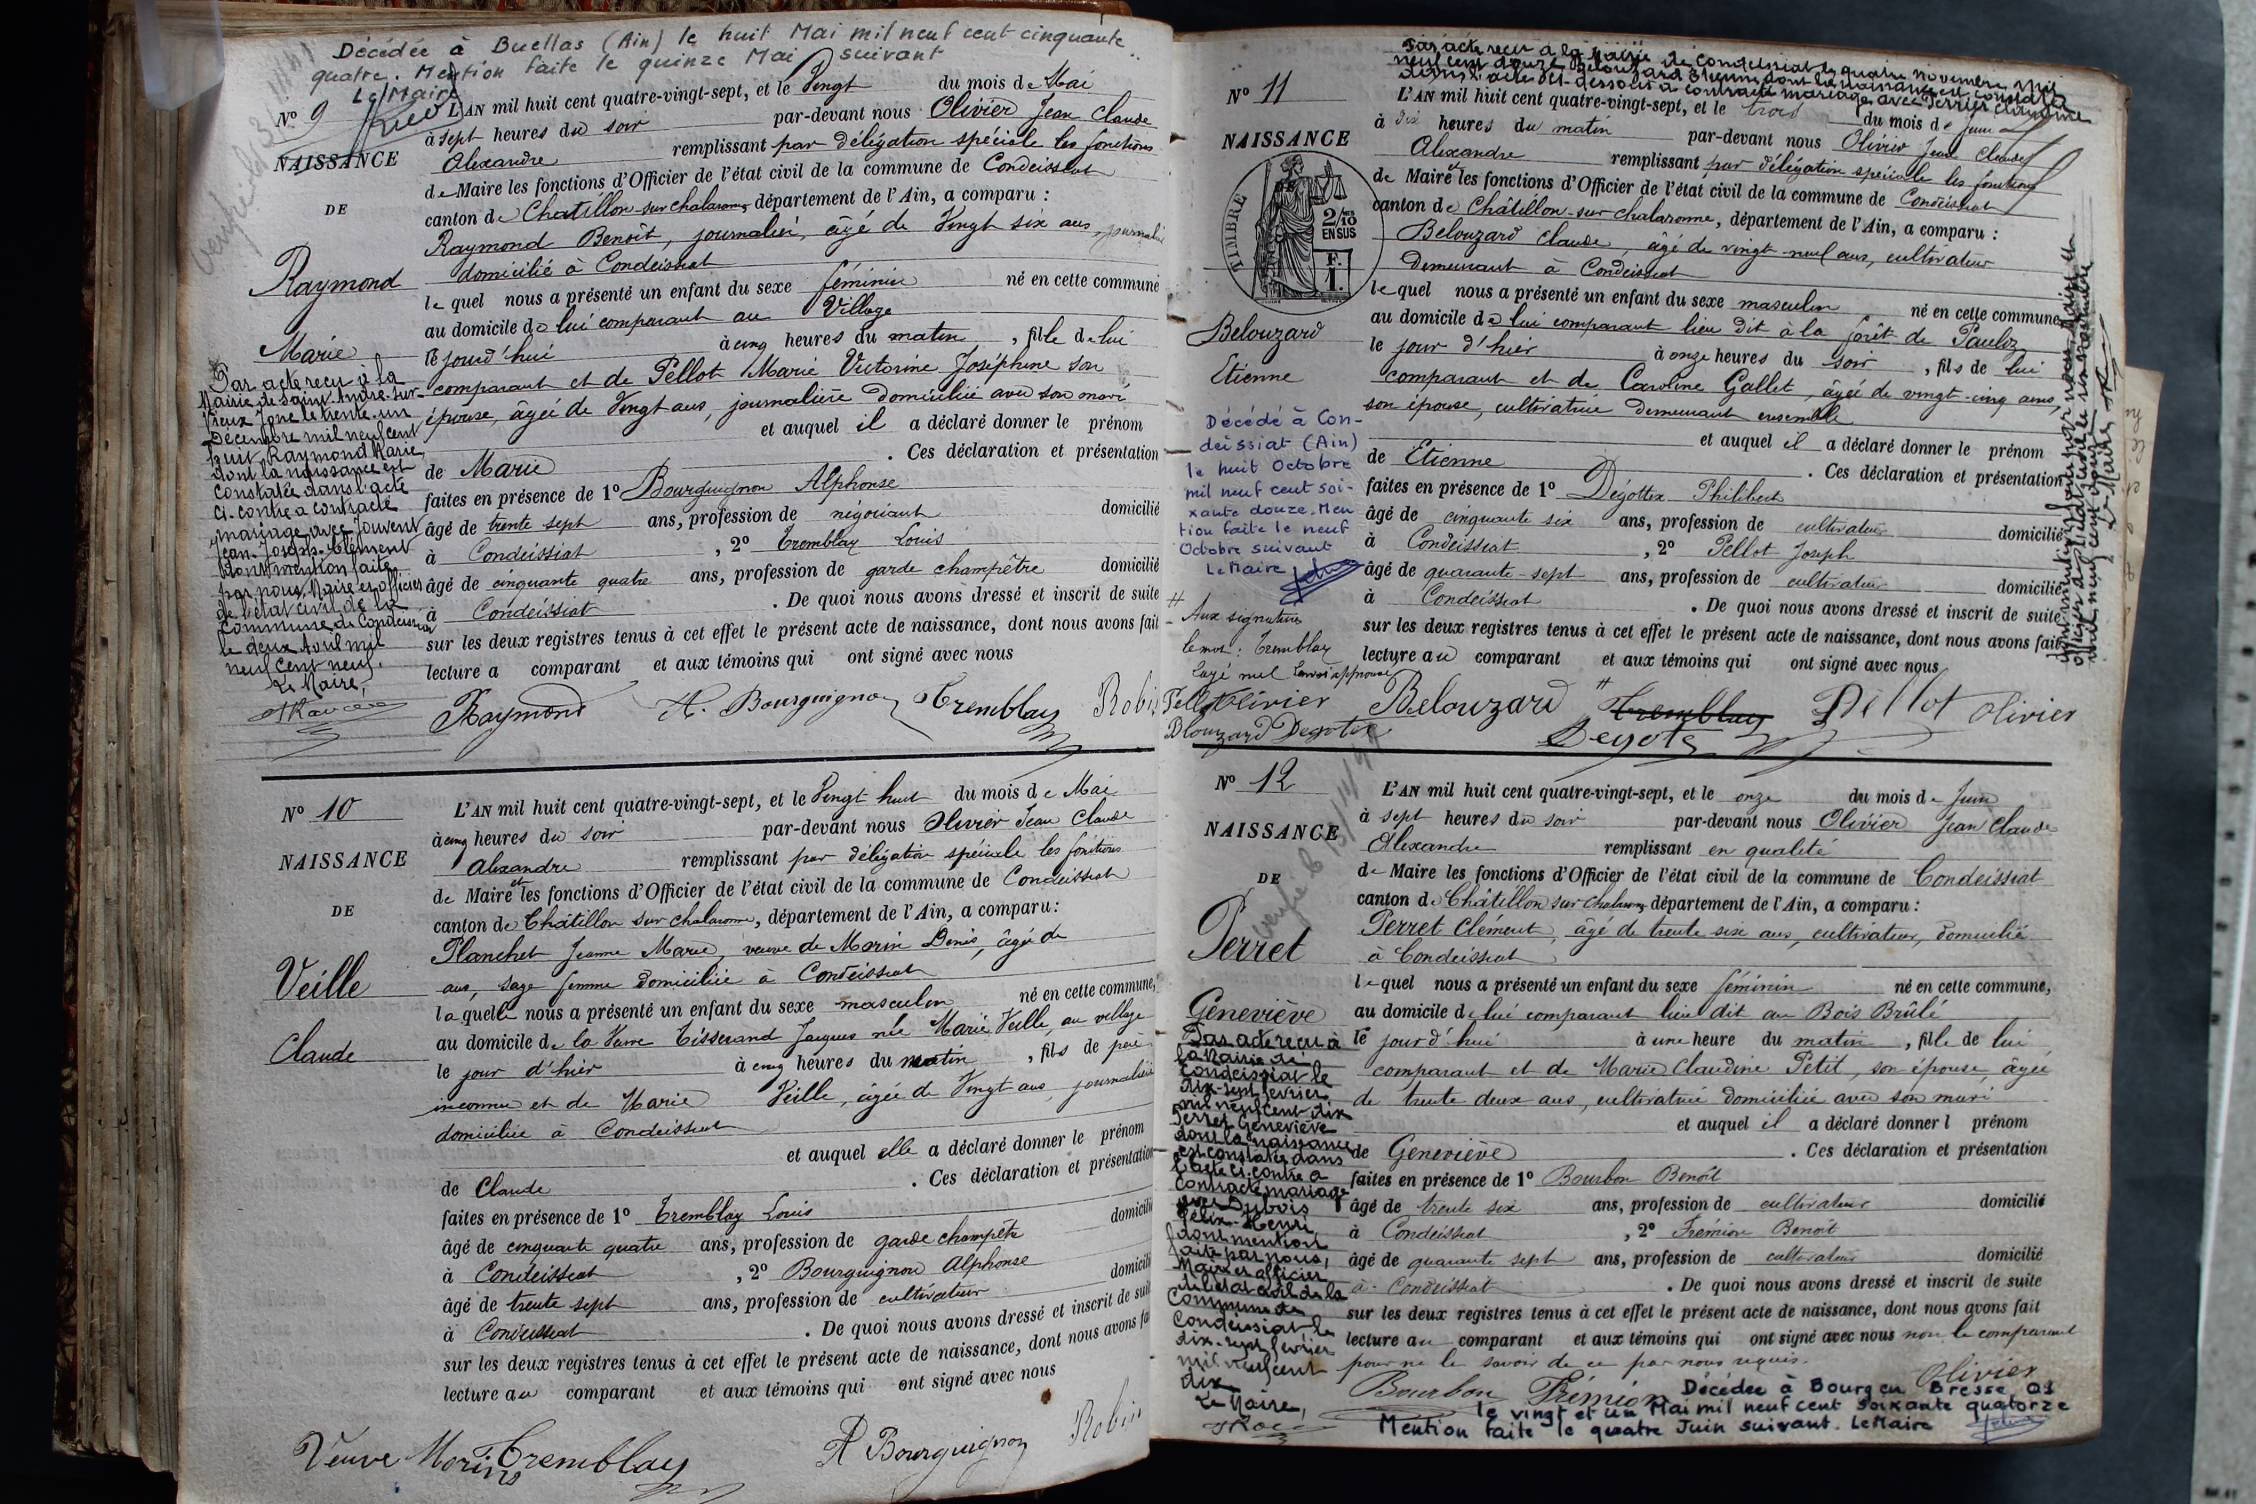 Décédée à Buellas (Ain) le huit Mai mil neuf cent cinquante
quatre. Mention faite le quinze Mai suivant
Le Maire
N° 9
NAISSANCE
DE
Raymond
Marie
L'AN mil huit cent quatre-vingt-sept, et le Vingt du mois de Mai
à sept heures du soir par-devant nous Olivier Jean Claude
Alexandre remplissant par délégation spéciale les fonctions
de Maire les fonctions d'Officier de l'état civil de la commune de Condeissiat
canton de Chatillon-sur-chalaronne département de l'Ain, a comparu :
Raymond Benoît, journalier, âgé de Vingt six ans, journalier
domicilié à Condeissiat
lequel nous a présenté un enfant du sexe féminin né en cette commune
au domicile de lui comparant au Village
le jourd'hui à cinq heures du matin, fille de lui
comparant et de Pellot Marie Victorine Joséphine son
épouse, âgée de Vingt ans, journalière domiciliée avec son mari
et auquel il a déclaré donner le prénom
de Marie . Ces déclaration et présentation
faites en présence de 1° Bourguignon Alphonse
âgé de trente sept ans, profession de négociant domicilié
à Condeissiat , 2° Tremblay Louis
âgé de cinquante quatre ans, profession de garde champêtre domicilié
à Condeissiat . De quoi nous avons dressé et inscrit de suite
sur les deux registres tenus à cet effet le présent acte de naissance, dont nous avons fait
lecture a comparant et aux témoins qui ont signé avec nous
Raymond A. Bourguignon Tremblay Robin
Par acte reçu à la
Mairie de Saint André-sur-
Vieux Jonc le trente-un
Décembre mil neuf cent
huit, Raymond Marie
dont la naissance est
constatée dans l'acte
ci-contre a contracté
mariage avec Jouvent
Jean-Joseph-Clément
dont mention faite
par nous, Maire et officier
de l'état civil de la
Commune de Condeissiat
le deux Avril mil
neuf cent neuf.
Le Maire,
N° 10
NAISSANCE
DE
Veille
Claude
L'AN mil huit cent quatre-vingt-sept, et le Vingt huit du mois de Mai
à cinq heures du soir par-devant nous Olivier Jean Claude
Alexandre remplissant par délégation spéciale les fonctions
de Maire et les fonctions d'Officier de l'état civil de la commune de Condeissiat
canton de Châtillon sur chalaronne, département de l'Ain, a comparu :
Planchet Jeanne Marie, veuve de Morin Denis, âgée de
ans, sage femme domiciliée à Condeissiat
laquelle nous a présenté un enfant du sexe masculin né en cette commune,
au domicile de la Veuve Tisserand Jacques née Marie Veille, au village
le jour d'hier à cinq heures du matin, fils de père
inconnu et de Marie Veille, âgée de Vingt ans, journalière
domiciliée à Condeissiat
et auquel elle a déclaré donner le prénom
de Claude . Ces déclaration et présentation
faites en présence de 1° Tremblay Louis
âgé de cinquante quatre ans, profession de garde champêtre domicilié
à Condeissiat , 2° Bourguignon Alphonse
âgé de trente sept ans, profession de cultivateur domicilié
à Condeissiat . De quoi nous avons dressé et inscrit de suite
sur les deux registres tenus à cet effet le présent acte de naissance, dont nous avons fait
lecture au comparant et aux témoins qui ont signé avec nous
Veuve Morin Tremblay A Bourguignon Robin
Par acte reçu à la Mairie de Condeissiat le quatre novembre mil
neuf cent douze Belouzard Etienne dont la naissance est constatée
dans l'acte ci-dessous a contracté mariage avec Perrier Claudine
N° 11
NAISSANCE
TIMBRE
2/10 EN SUS
F. 1.
Belouzard
Etienne
L'AN mil huit cent quatre-vingt-sept, et le trois du mois de Juin
à dix heures du matin par-devant nous Olivier Jean Claude
Alexandre remplissant par délégation spéciale les fonctions
de Maire les fonctions d'Officier de l'état civil de la commune de Condeissiat
canton de Châtillon-sur-chalaronne, département de l'Ain, a comparu :
Belouzard Claude, âgé de vingt-neuf ans, cultivateur
Demeurant à Condeissiat
lequel nous a présenté un enfant du sexe masculin né en cette commune
au domicile de lui comparant lieu dit à la forêt de Pauloz
le jour d'hier à onze heures du soir, fils de lui
comparant et de Caroline Gallet, âgée de vingt-cinq ans,
son épouse, cultivatrice demeurant ensemble
et auquel il a déclaré donner le prénom
de Etienne . Ces déclaration et présentation
faites en présence de 1° Dégottex Philibert
âgé de cinquante six ans, profession de cultivateur domicilié
à Condeissiat , 2° Pellot Joseph
âgé de quarante-sept ans, profession de cultivateur domicilié
à Condeissiat . De quoi nous avons dressé et inscrit de suite
sur les deux registres tenus à cet effet le présent acte de naissance, dont nous avons fait
lecture au comparant et aux témoins qui ont signé avec nous
Belouzard Tremblay Pellot Olivier
Décédé à Con-
deissiat (Ain)
le huit Octobre
mil neuf cent soi-
xante douze. Men
tion faite le neuf
Octobre suivant
Le Maire
Aux signatures
le mot : Tremblay
rayé nul
Pellot Olivier
Blouzard
dont mention faite par nous Maire et
officier de l'état civil de Condeissiat le
mil neuf cent douze
Le Maire
N° 12
NAISSANCE
DE
Perret
Geneviève
L'AN mil huit cent quatre-vingt-sept, et le onze du mois de Juin
à sept heures du soir par-devant nous Olivier Jean Claude
Alexandre remplissant en qualité
de Maire les fonctions d'Officier de l'état civil de la commune de Condeissiat
canton de Châtillon sur chalaronne département de l'Ain, a comparu :
Perret Clément, âgé de trente six ans, cultivateur, domicilié
à Condeissiat
lequel nous a présenté un enfant du sexe féminin né en cette commune,
au domicile de lui comparant lieu dit au Bois Brûlé
le jourd'hui à une heure du matin, fille de lui
comparant et de Marie Claudine Petit, son épouse, âgée
de trente deux ans, cultivatrice domiciliée avec son mari
et auquel il a déclaré donner l prénom
de Geneviève . Ces déclaration et présentation
faites en présence de 1° Bourbon Benoît
âgé de trente six ans, profession de cultivateur domicilié
à Condeissiat , 2° Frémion Benoît
âgé de quarante sept ans, profession de cultivateur domicilié
à Condeissiat . De quoi nous avons dressé et inscrit de suite
sur les deux registres tenus à cet effet le présent acte de naissance, dont nous avons fait
lecture au comparant et aux témoins qui ont signé avec nous non le comparant
pour ne le savoir de ce par nous requis.
Bourbon Frémion Olivier
Décédée à Bourg en Bresse 01
le vingt et un Mai mil neuf cent soixante quatorze
Mention faite le quatre Juin suivant. Le Maire
Par acte reçu à
la Mairie de
Condeissiat le
dix-sept février
mil neuf cent dix
Perret Geneviève
dont la naissance
est constatée dans
l'acte ci-contre a
contracté mariage
avec Dubois
Félix-Henri
dont mention
faite par nous,
Maire et officier
de l'état civil de la
Commune de
Condeissiat le
dix-sept février
mil neuf cent
dix
Le Maire,